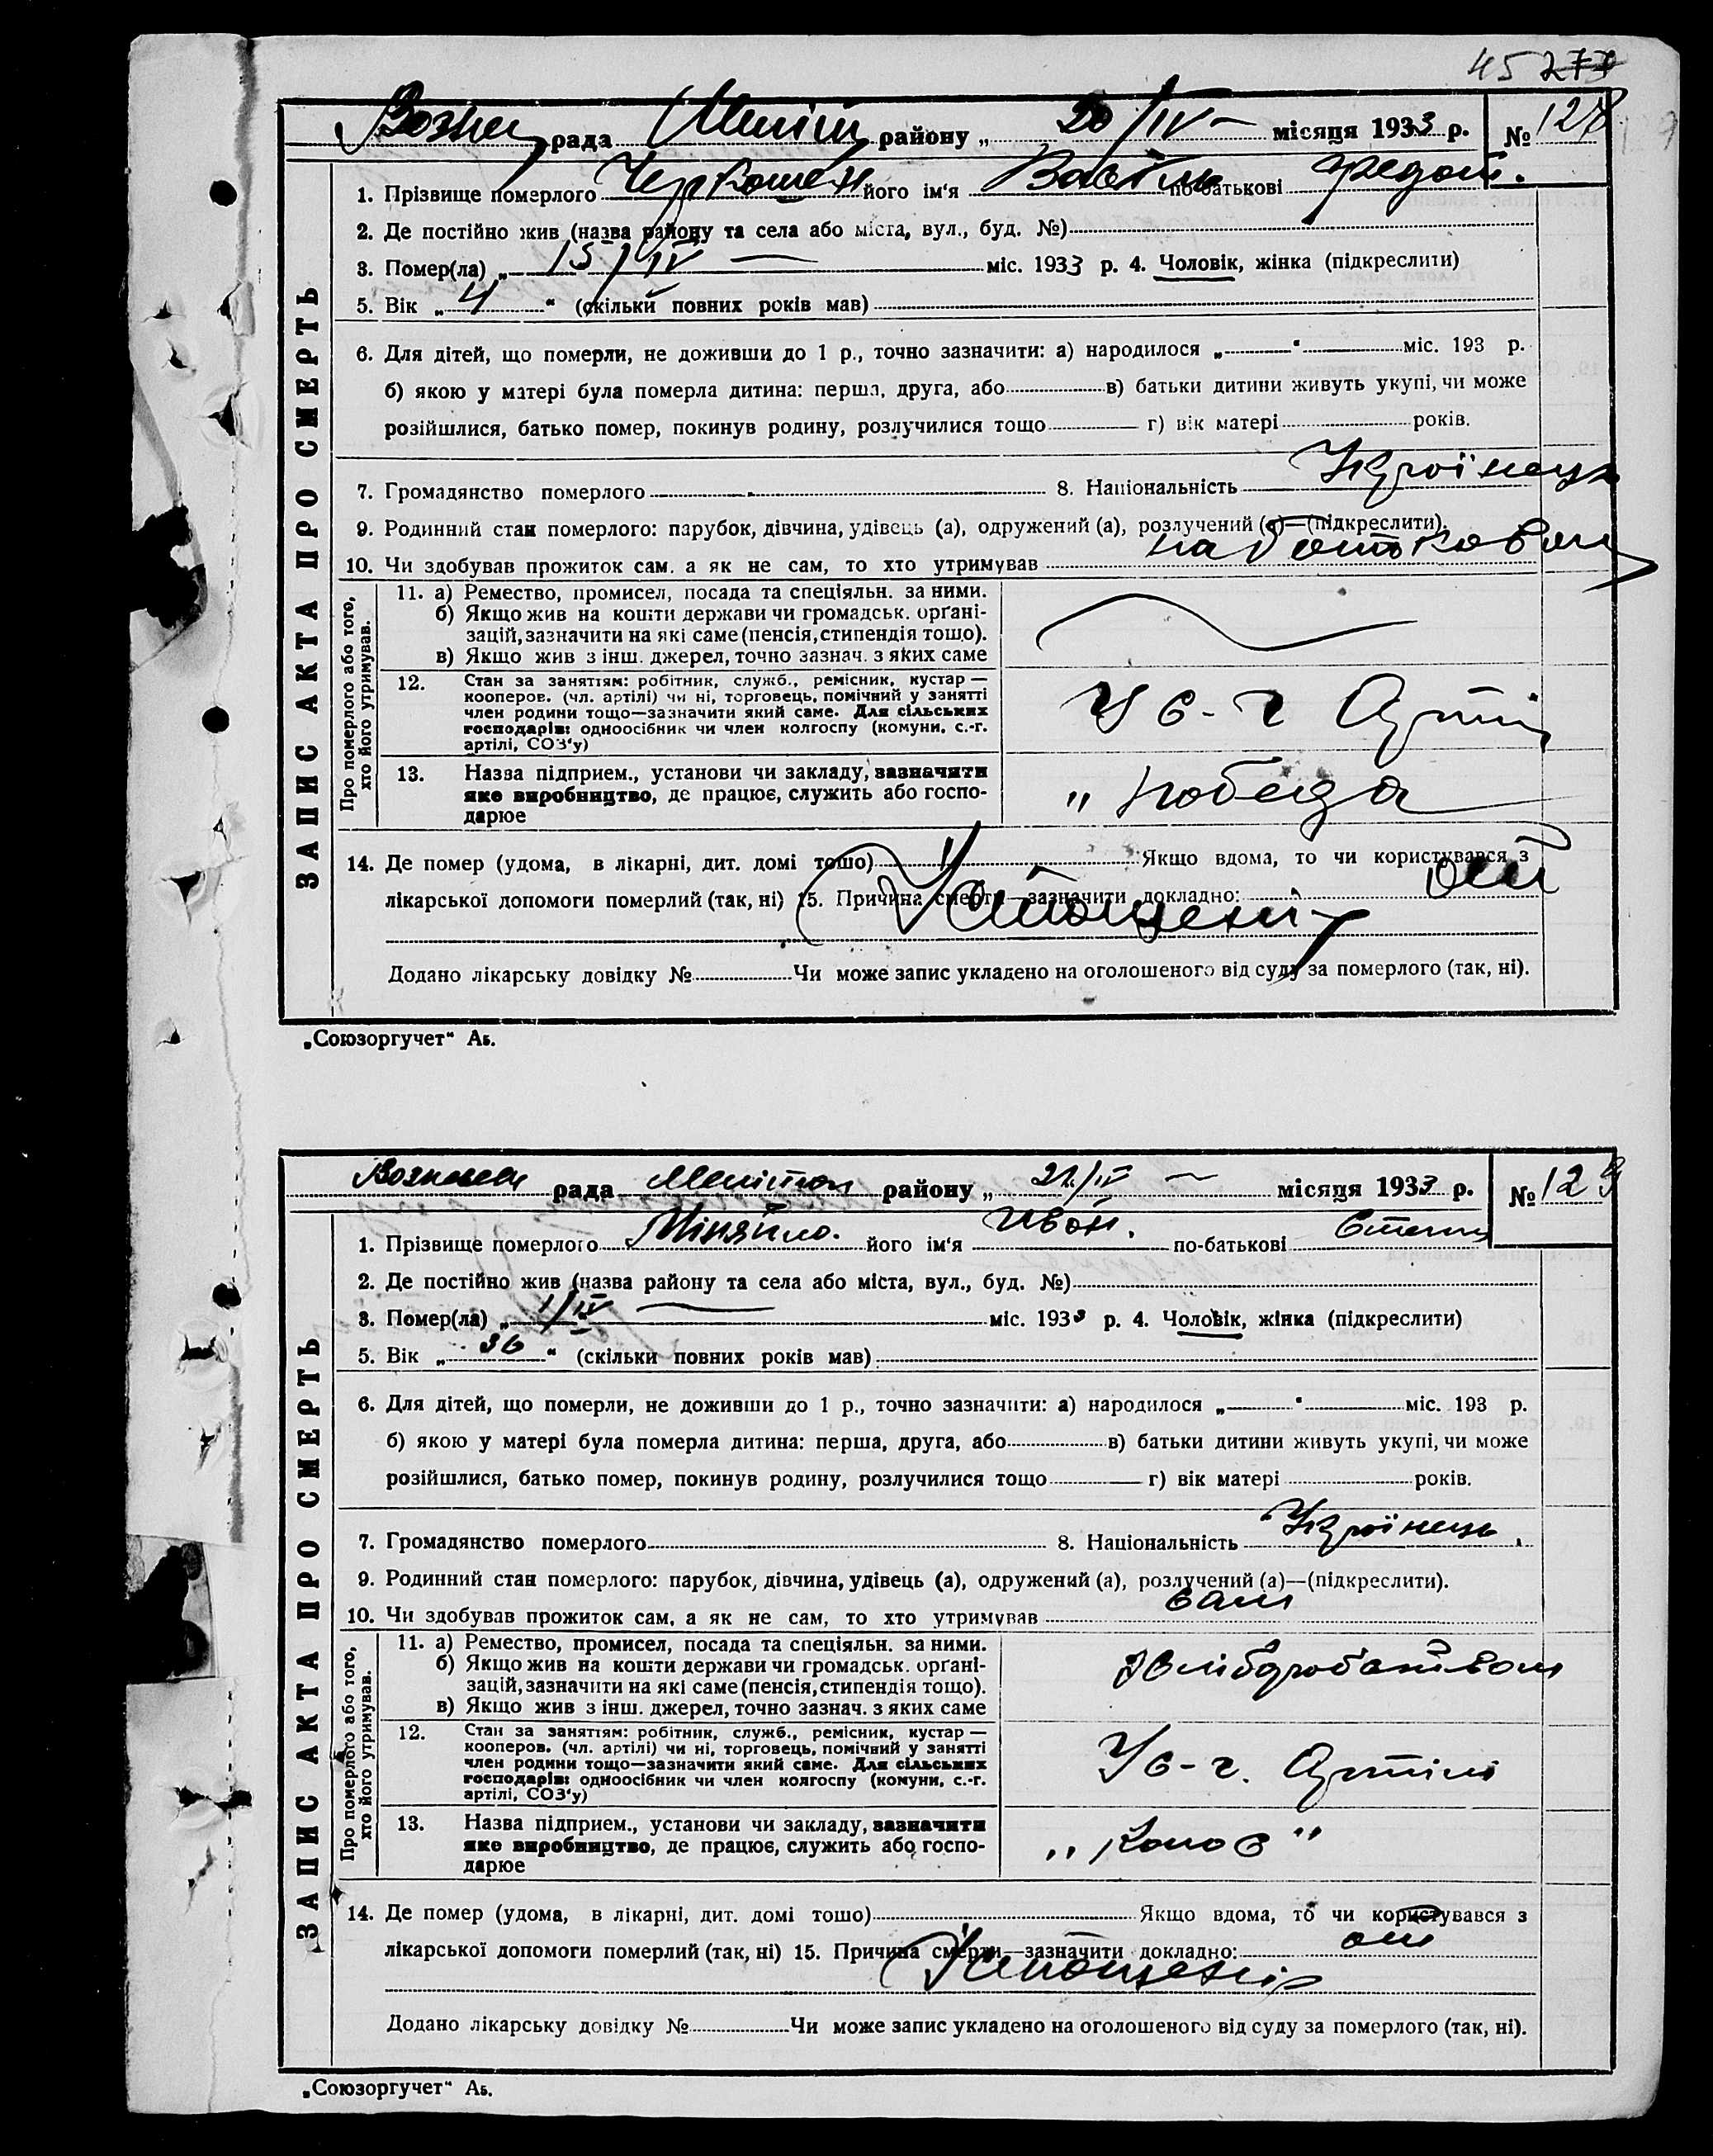 45 277
рада району „ 20/IV — місяця 1933 р. № 128
1. Прізвище померлого його ім'я Василь по-батькові Федот.
2. Де постійно жив (назва району та села або міста, вул., буд. №)
3. Помер(ла) „ 15/IV — міс. 1933 р. 4. Чоловік, жінка (підкреслити)
5. Вік „ 4 “ (скільки повних років мав)
6. Для дітей, що померли, не доживши до 1 р., точно зазначити: а) народилося „ “ міс. 193 р.
б) якою у матері була померла дитина: перша, друга, або в) батьки дитини живуть укупі, чи може
розійшлися, батько помер, покинув родину, розлучилися тощо г) вік матері років.
7. Громадянство померлого 8. Національність Українець
9. Родинний стан померлого: парубок, дівчина, удівець (а), одружений (а), розлучений (а)—(підкреслити).
10. Чи здобував прожиток сам, а як не сам, то хто утримував
ЗАПИС АКТА ПРО СМЕРТЬ
Про померлого або того, хто його утримував.
11. а) Ремество, промисел, посада та спеціяльн. за ними.
б) Якщо жив на кошти держави чи громадськ. органі-
зацій, зазначити на які саме (пенсія, стипендія тощо).
в) Якщо жив з інш. джерел, точно зазнач. з яких саме
12. Стан за заняттям: робітник, служб., ремісник, кустар —
кооперов. (чл. артілі) чи ні, торговець, помічний у занятті
член родини тощо—зазначити який саме. Для сільських
господарів: одноосібник чи член колгоспу (комуни, с.-г.
артілі, СОЗ'у)
У с-г Артілі
13. Назва підприєм., установи чи закладу, зазначити
яке виробництво, де працює, служить або госпо-
дарює
„ победа
14. Де помер (удома, в лікарні, дит. домі тощо) Якщо вдома, то чи користувався з
лікарської допомоги померлий (так, ні) 15. Причина смерти—зазначити докладно: от
істощенія
Додано лікарську довідку № Чи може запис укладено на оголошеного від суду за померлого (так, ні).
„Союзоргучет“ Аь.
рада району „ 21/IV — місяця 1933 р. № 129
1. Прізвище померлого Міняйло. його ім'я Иван. по-батькові Степан
2. Де постійно жив (назва району та села або міста, вул., буд. №)
3. Помер(ла) „ 1/IV — міс. 1933 р. 4. Чоловік, жінка (підкреслити)
5. Вік „ 36 “ (скільки повних років мав)
6. Для дітей, що померли, не доживши до 1 р., точно зазначити: а) народилося „ “ міс. 193 р.
б) якою у матері була померла дитина: перша, друга, або в) батьки дитини живуть укупі, чи може
розійшлися, батько помер, покинув родину, розлучилися тощо г) вік матері років.
7. Громадянство померлого 8. Національність Українець.
9. Родинний стан померлого: парубок, дівчина, удівець (а), одружений (а), розлучений (а)—(підкреслити).
10. Чи здобував прожиток сам, а як не сам, то хто утримував сам
ЗАПИС АКТА ПРО СМЕРТЬ
Про померлого або того, хто його утримував.
11. а) Ремество, промисел, посада та спеціяльн. за ними.
б) Якщо жив на кошти держави чи громадськ. органі-
зацій, зазначити на які саме (пенсія, стипендія тощо).
в) Якщо жив з інш. джерел, точно зазнач. з яких саме
хлібдробатвом
12. Стан за заняттям: робітник, служб., ремісник, кустар —
кооперов. (чл. артілі) чи ні, торговець, помічний у занятті
член родини тощо—зазначити який саме. Для сільських
господарів: одноосібник чи член колгоспу (комуни, с.-г.
артілі, СОЗ'у)
У с-г. Артілі
13. Назва підприєм., установи чи закладу, зазначити
яке виробництво, де працює, служить або госпо-
дарює
„ Колос “
14. Де помер (удома, в лікарні, дит. домі тощо) Якщо вдома, то чи користувався з
лікарської допомоги померлий (так, ні) 15. Причина смерти—зазначити докладно: от
істощенія
Додано лікарську довідку № Чи може запис укладено на оголошеного від суду за померлого (так, ні).
„Союзоргучет“ Аь.